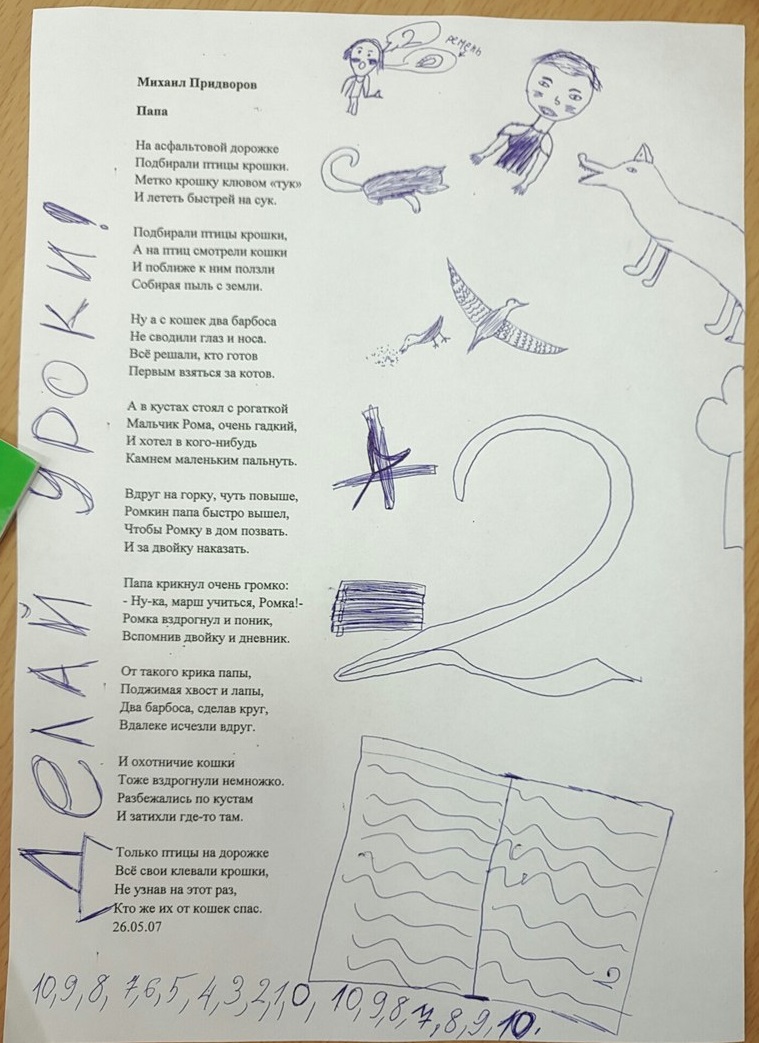 Михаил Придворов
Папа
На асфальтовой дорожке
Подбирали птицы крошки.
Метко крошку клювом «тук»
И лететь быстрей на сук.
Подбирали птицы крошки,
А на птиц смотрели кошки
И поближе к ним ползли
Собирая пыль с земли.
Ну а с кошек два барбоса
Не сводили глаз и носа.
Всё решали, кто готов
Первым взяться за котов.
А в кустах стоял с рогаткой
Мальчик Рома, очень гадкий,
И хотел в кого-нибудь
Камнем маленьким пальнуть.
Вдруг на горку, чуть повыше,
Ромкин папа быстро вышел,
Чтобы Ромку в дом позвать.
И за двойку наказать.
Папа крикнул очень громко:
- Ну-ка, марш учиться, Ромка!-
Ромка вздрогнул и поник,
Вспомнив двойку и дневник.
От такого крика папы,
Поджимая хвост и лапы,
Два барбоса, сделав круг,
Вдалеке исчезли вдруг.
И охотничие кошки
Тоже вздрогнули немножко.
Разбежались по кустам
И затихли где-то там.
Только птицы на дорожке
Всё свои клевали крошки,
Не узнав на этот раз,
Кто же их от кошек спас.
26.05.07
Делай уроки!
2
ремель
2
2
10,9,8, 7,6,5, 4,3,2,1,0, 10,9,8,7,8,9,10.